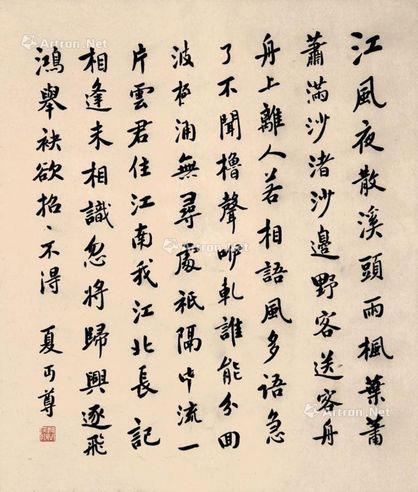 江風夜散溪頭雨楓葉蕭
蕭滿沙渚沙邊野客送客舟
舟上離人若相語風多語急
了不聞櫓聲咿軋誰能分回
波涌無尋處祇隔中流一
片雲君住江南我江北長記
相逢未相識忽將歸興逐飛
鴻舉袂欲招〻不得
夏丏尊
Artron.Net